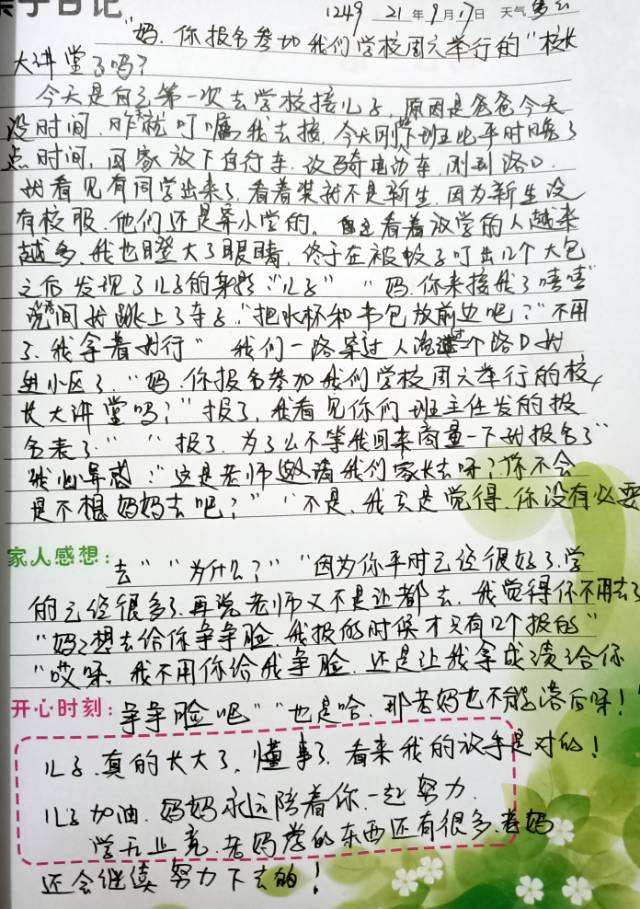 亲子日记 1249 21年9月17日 天气 多云
"妈.你报名参加我们学校周六举行的"校长
大讲堂了吗?
今天是自己第一次去学校接儿子,原因是爸爸今天
没时间.昨就叮嘱我去接.今天刚下班比平时晚了
点时间.回家放下自行车.改骑电动车.刚到路口.
就看见有同学出来了.看着装就不是新生.因为新生没
有校服.他们还是穿小学的。自己看着放学的人越来
越多.我也瞪大了眼睛.终于在被蚊子叮出几个大包
之后发现了儿子的身影."儿子" "妈.你来接我了嘻嘻"
说间就跳上了车子."把水杯和书包放前边吧?"不用
了.我拿着就行" 我们一路穿过人流过个路口就
进小区了."妈.你报名参加我们学校周六举行的校
长大讲堂吗?""报了,我看见你们班主任发的报
名表了.""报了.为了么不等我回来商量一下就报名了"
"这是老师邀请我们家长去呀?你不会
是不想妈妈去吧?""不是.我只是觉得.你没有必要
家人感想:去""为什么?""因为你平时已经很好了.学
的已经很多了.再说老师又不是让都去.我觉得你不用去了
"妈妈想去给你争争脸.我报的时候才只有几个报的"
"哎呀.我不用你给我争脸.还是让我拿成绩给你
开心时刻:争争脸吧""也是哈.那老妈也不能落后呀!"
儿子.真的长大了.懂事了.看来我的放手是对的!
儿子加油.妈妈永远陪着你.一起努力.
学无止竟.老妈学的东西还有很多.老妈
还会继续努力下去的!